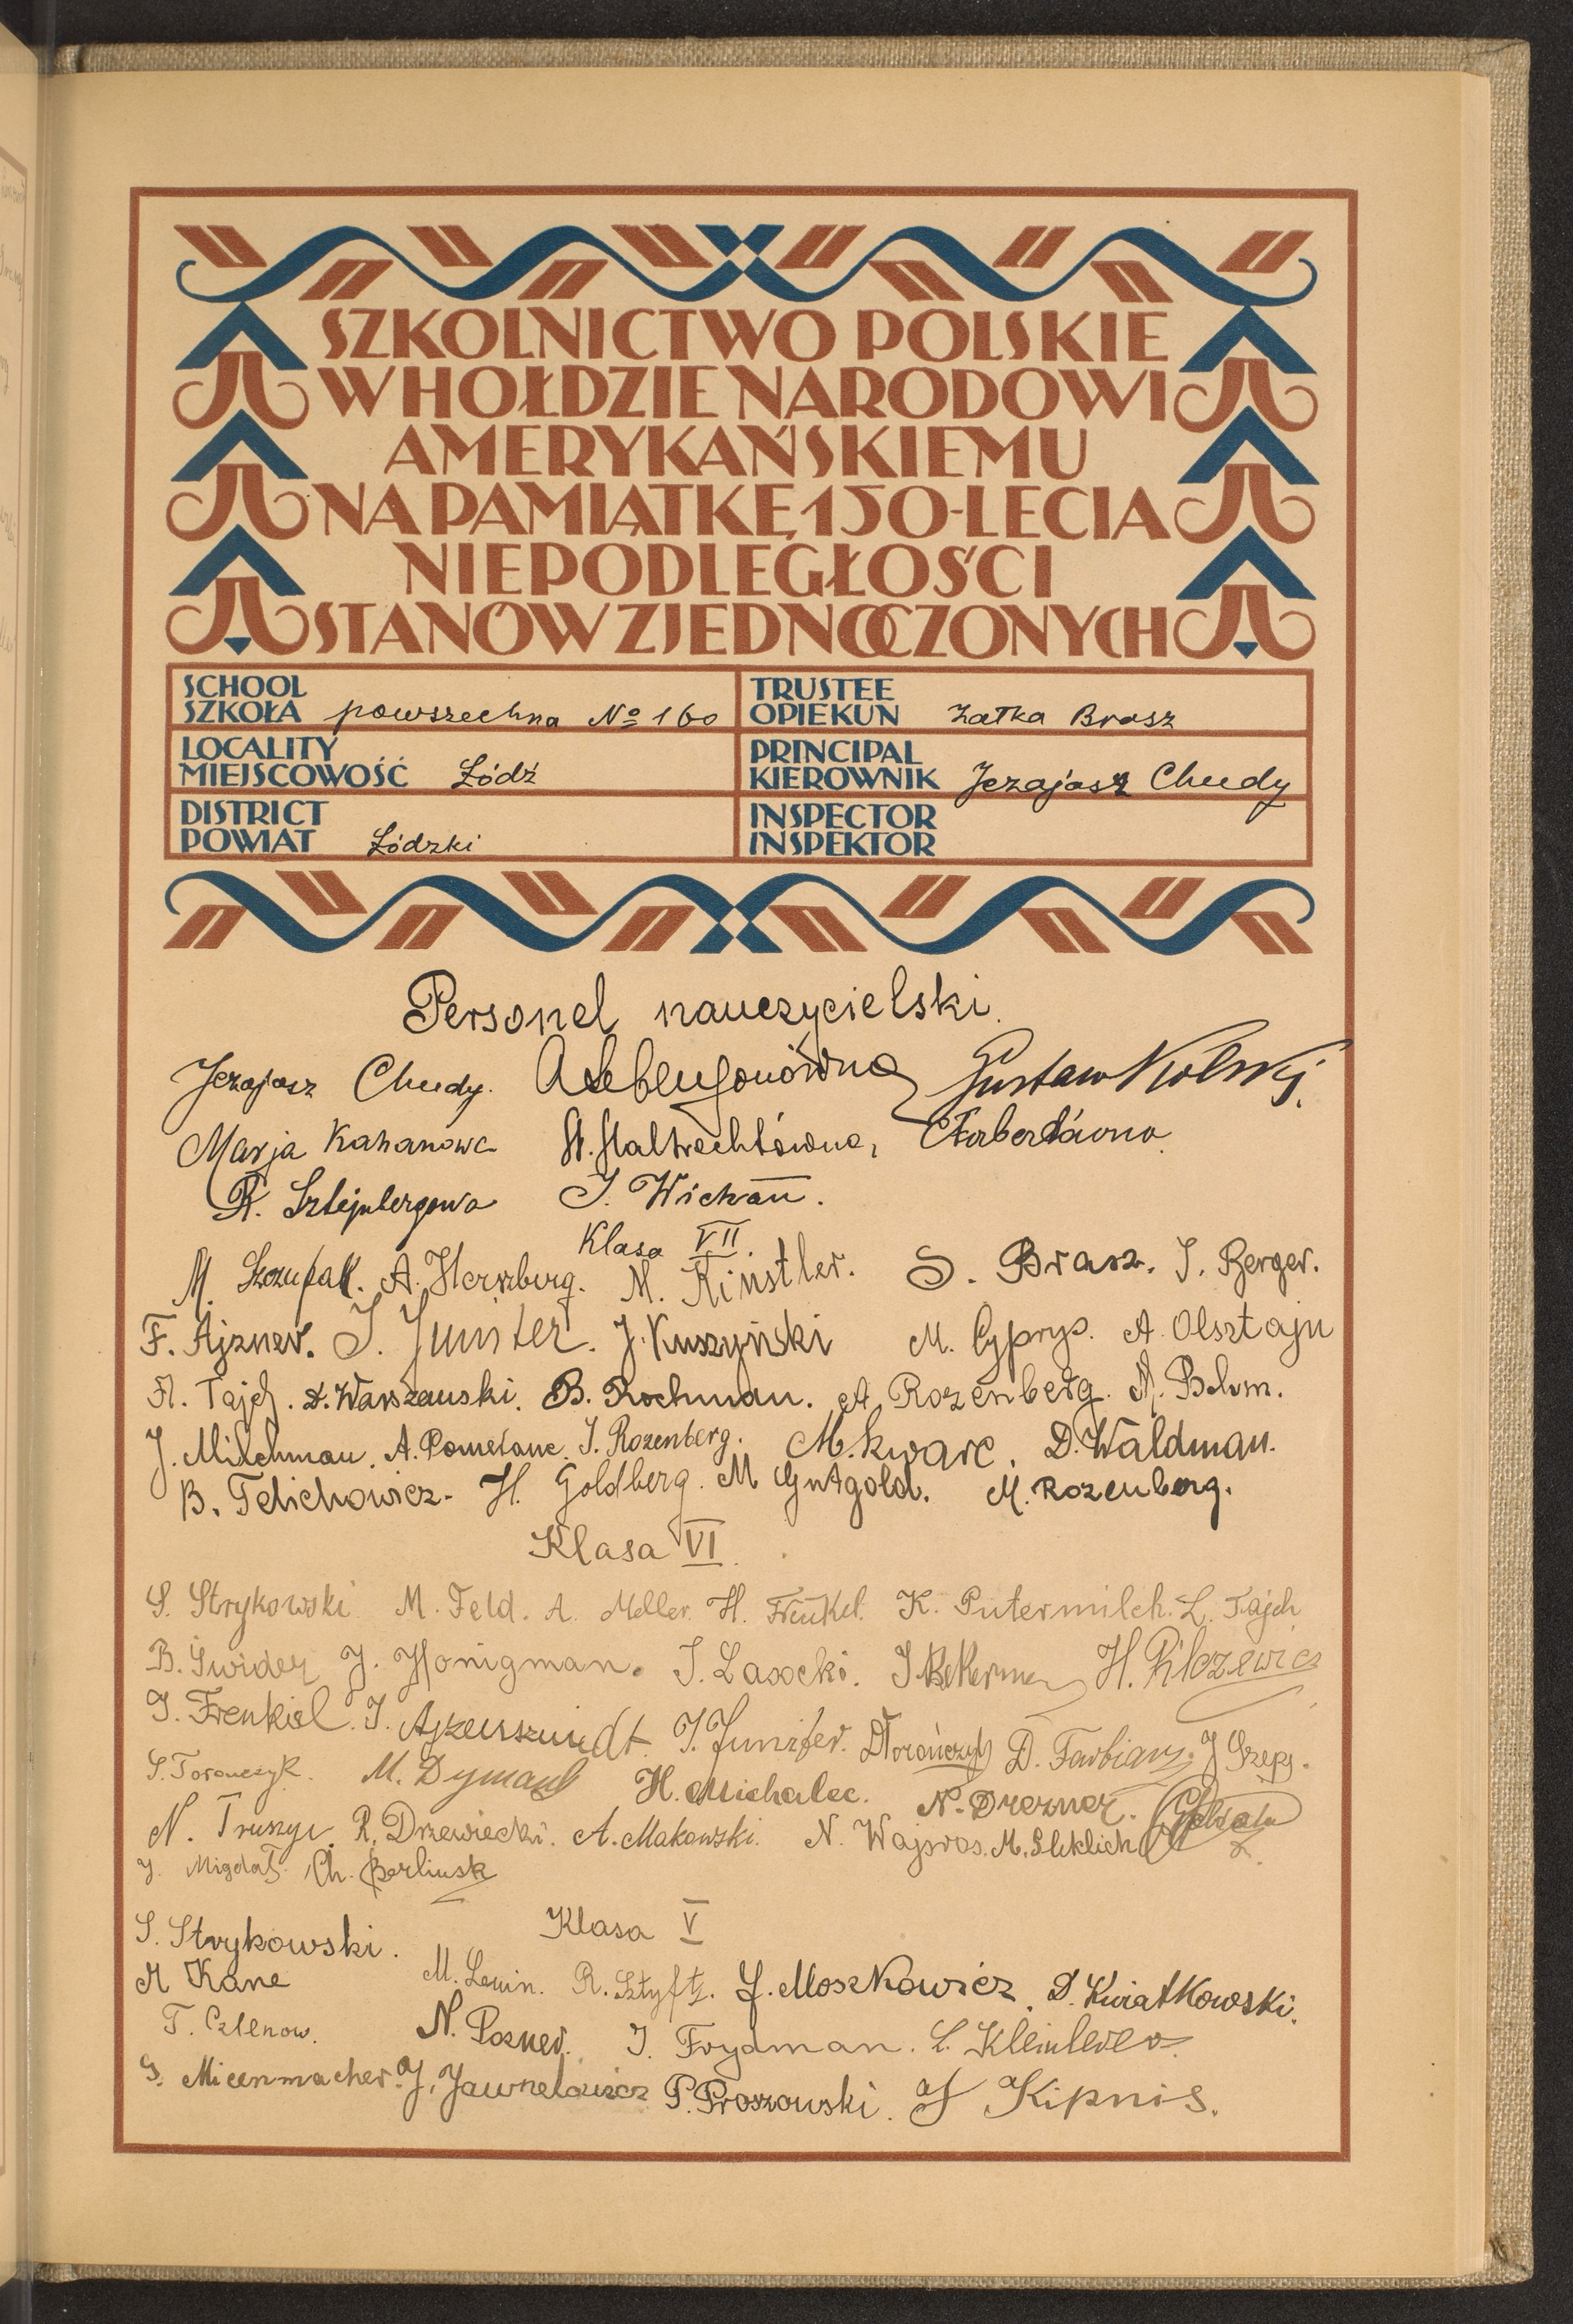 SZKOLNICTWO POLSKIE
W HOŁDZIE NARODOWI
AMERYKAŃSKIEMU
NA PAMIĄTKĘ 150-LECIA
NIEPODLEGŁOŚCI
STANÓW ZJEDNOCZONYCH
SCHOOL
SZKOŁA powszechna № 160
TRUSTEE
OPIEKUN Załka Brasz
LOCALITY
MIEJSCOWOŚĆ Łódź
PRINCIPAL
KIEROWNIK Jezajasz Chudy
DISTRICT
POWIAT Łódzki
INSPECTOR
INSPEKTOR
Personel nauczycielski.
Jezajasz Chudy. Gustaw Kolski.
Marja Kahanowa
R. Sztejnbergowa
Klasa VII.
A. Herszberg. M. Kinstler. S. Brasz. J. Berger.
F. Ajzner. J. Juniter. J. Kuszyński M. Cyprys. A. Olsztajn
Tajch. Warszawski. B. Rochman. A. Rozenberg. Blum.
J. Milchman. A. Pomeranc. J. Rozenberg. M. Kwarc. D. Waldman.
B. Felichowicz. H. Goldberg. M Gutgold. M. Rozenberg.
Klasa VI.
S. Strykowski M. Feld. A. Meller. H. Frenkel. K. Putermilch. L. Tajch
B. Świder J. Honigman. J. Lasocki. H. Pilczewicz
J. Frenkiel. J. Ajzenszmidt. D. Farbiarz. J
S. Torończyk. M. Dymant H. Michalec. N. Drezner.
N. R. Drzewiecki. A. Makowski. N. Wajsros. M.
J. Migdał. Ch.
Klasa V
S. Strykowski.
M Kane M. Lewin. R. Sztyft. J. Moszkowicz. D. Kwiatkowski.
T. Czlenow. N. Pozner. J. Frydman.
Micenmacher. P. Proszowski. J Kipnis.